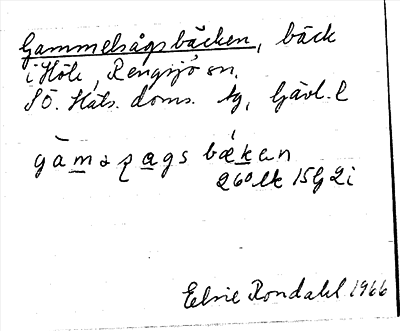 Gammelsågsbäcken, bäck
i Höle, Rengsjö sn,
SÖ. Häls. doms. tg, Gävl. l
gàmₔʂags bǽkₔn
26° Ek 15G 2i
Elsie Rondahl 1966